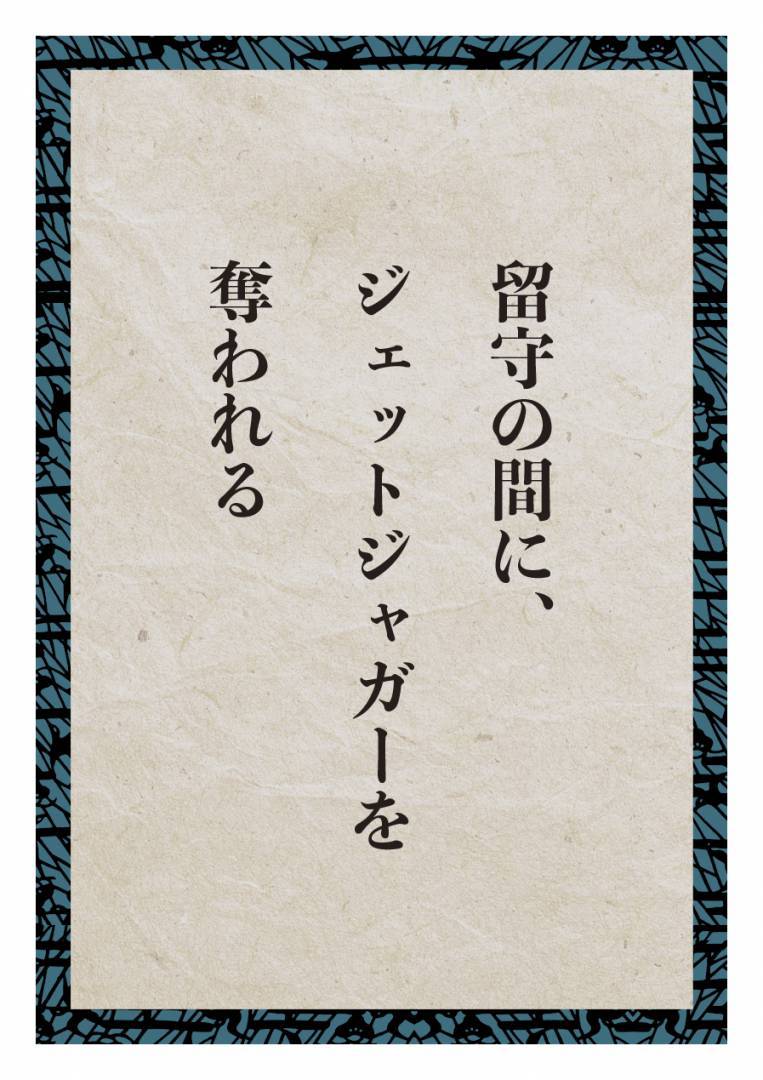 留守の間に、
ジェットジャガーを
奪われる